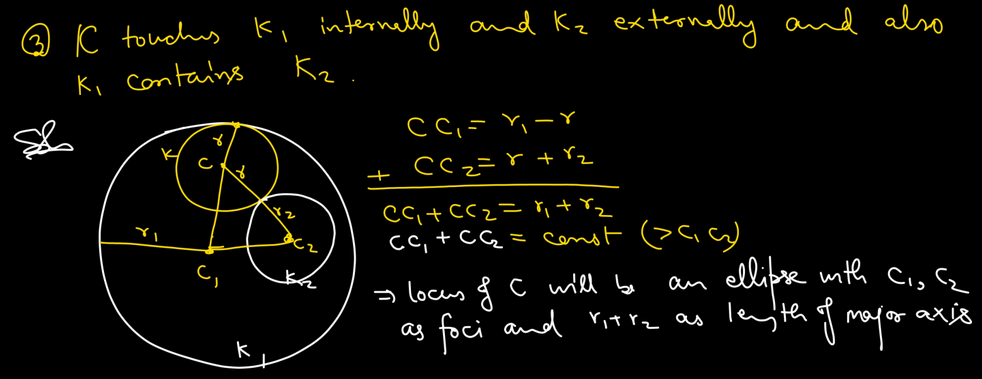 ③ K touches K₁ internally and K₂ externally and also
K₁ contains K₂.
Sol
K
r
C
r
r₂
r₁
C₁
C₂
K₂
K₁
CC₁ = r₁ - r
+ CC₂ = r + r₂
CC₁ + CC₂ = r₁ + r₂
CC₁ + CC₂ = const (> C₁C₂)
⇒ locus of C will be an ellipse with C₁, C₂
as foci and r₁+r₂ as length of major axis